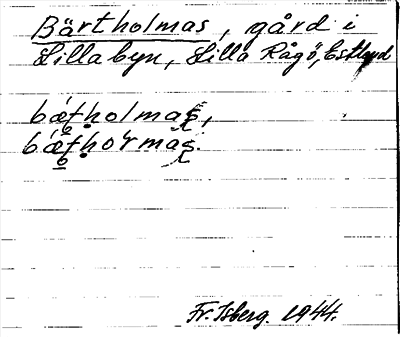 Bärtholmas, gård i
Lillabyn, Lilla Rågö, Estland
bætholmas,
bæthormas.
Fr. Isberg. 1944.